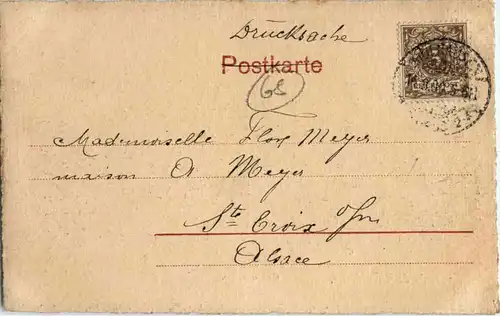 Drucksache
Postkarte
68
Mademoiselle Flox Meyer
maison A Meyer
Ste Croix a/m
Alsace